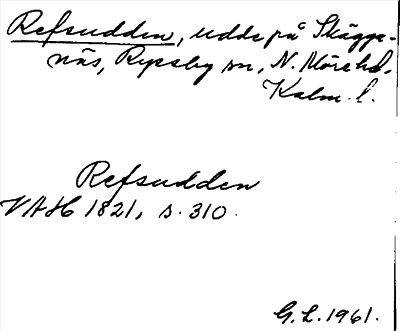 Refsudden, udde på Skägge-
näs, Ryssby sn, N. Möre hd,
Kalm. l.
Refsudden
VAH 1821, s. 310.
G. L. 1961.